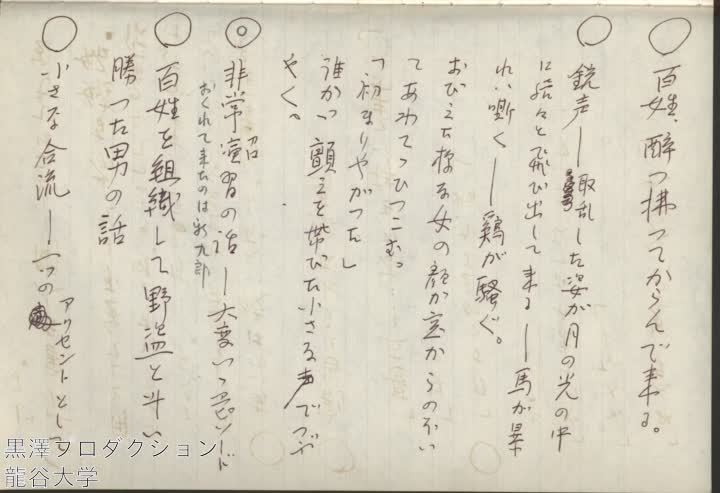 ○ 百姓、酔つ拂つてからんで来る。
○ 銃声――取乱した姿が月の光の中
に続々と飛び出して来る――馬が暴
れ、嘶く――鶏が騒ぐ。
おびえた様な女の顔が窓からのぞい
てあわてゝひつこむ。
「初まりやがつた」
誰かゞ顫えを帯びた小さな声でつぶ
やく。
◎ 非常召習の話――大変いゝエピソード
おくれて来たのは 九郎
○ 百姓を組織して野盗と斗い
勝つた男の話
○ 小さな合流――一つの アクセントとして
黒澤プロダクション
龍谷大学